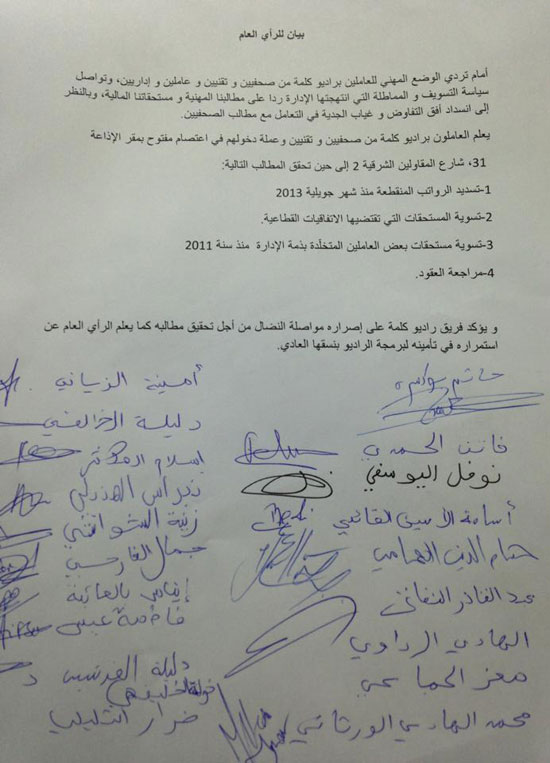 بيان للرأي العام
أمام تردي الوضع المهني للعاملين براديو كلمة من صحفيين و تقنيين و عاملين و إداريين، وتواصل
سياسة التسويف و المماطلة التي انتهجتها الإدارة ردا على مطالبنا المهنية و مستحقاتنا المالية، وبالنظر
إلى انسداد أفق التفاوض و غياب الجدية في التعامل مع مطالب الصحفيين.
يعلم العاملون براديو كلمة من صحفيين و تقنيين وعملة دخولهم في اعتصام مفتوح بمقر الإذاعة
31، شارع المقاولين الشرقية 2 إلى حين تحقق المطالب التالية:
1-تسديد الرواتب المنقطعة منذ شهر جويلية 2013
2-تسوية المستحقات التي تقتضيها الاتفاقيات القطاعية.
3-تسوية مستحقات بعض العاملين المتخلّدة بذمة الإدارة منذ سنة 2011
4-مراجعة العقود.
و يؤكد فريق راديو كلمة على إصراره مواصلة النضال من أجل تحقيق مطالبه كما يعلم الرأي العام عن
استمراره في تأمينه لبرمجة الراديو بنسقها العادي.
حاتم
فاتن الحمدي
نوفل اليوسفي
أسامة الأمين القائمي
حسام الدين الهامي
عبد القادر النفاتي
الهادي الرداوي
معز الجماعي
محمد الهادي الورتاني
أمينة الزياني
دليلة
إسلام
زينة الشواشي
جمال الفارسي
إيناس بالعائبة
فاطمة عيسى
دليلة
خولة
ضرار الثليبي